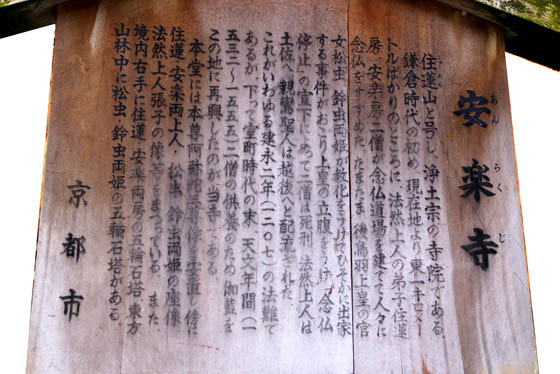 安楽寺
あん らく じ
住蓮山と号し、浄土宗の寺院である。
鎌倉時代の初め、現在地より東一キロメー
トルばかりのところに、法然上人の弟子住蓮
房・安楽房二僧が念仏道場を建てて人々に
念仏をすすめた。たまたま、後鳥羽上皇の官
女松虫・鈴虫両姫が教化をうけてひそかに出家
する事件がおこり上皇の立腹をうけ、念仏
停止の宣下によって二僧は死刑、法然上人は
土佐へ、親鸞聖人は越後へと配流された。
これがいわゆる建永二年(一二〇七)の法難で
あるが、下って室町時代の末、天文年間(一
五三二〜一五五五)二僧の供養のため伽藍を
この地に再興したのが当寺である。
本堂には本尊阿弥陀三尊像を安置し、傍に
住蓮・安楽両上人、松虫・鈴虫両姫の座像、
法然上人張子の像等をまつっている。また、
境内右手に住蓮・安楽両房の五輪石塔、東方
山林中に松虫・鈴虫両姫の五輪石塔がある。
京都市